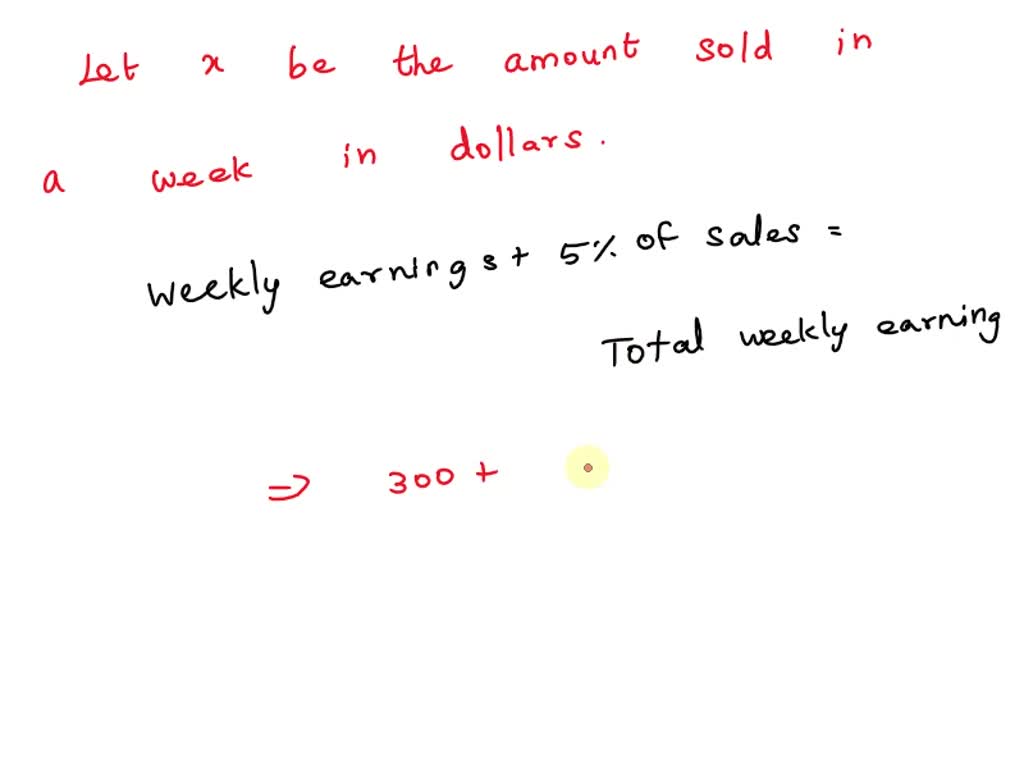 Let x be the amount sold in
a week in dollars.
Weekly earnings + 5% of sales =
Total weekly earning
⇒ 300 +